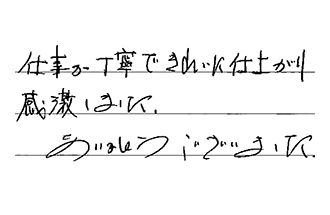 仕事が丁寧できれいに仕上がり
感激しました.
ありがとうございました.